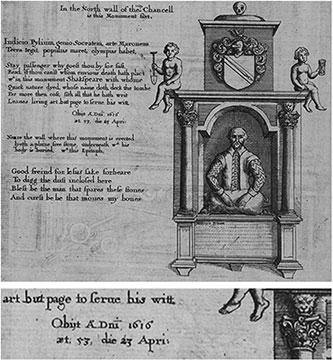 In the North wall of the Chancell
is this Monument fixt.
Iudicio Pylium, genio Socratem, arte Maronem
Terra tegit, populus mæret, olympus habet,
Stay passenger why goest thou by soe fast
Read, if thou canst whom envious death hath plac't
wthin this monument Shakspeare with whome
Quick nature dyed, whose name doth deck the tombe
Far more then cost, sith all that he hath writt
Leaves living art but page to serve his witt.
Obijt A.Dni 1616
æt. 53, die 23 Apri:
Neare the wall where this monument is erected
lyeth a plaine free stone, underneath wch his
body is buried, wth this Epitaph,
Good freend for Iesus sake forbeare
To digg the dust inclosed here
Blest be the man that spares these stones
And curst be he that moves my bones
art but page to serue his witt.
Obijt Æ.Dni 1616
æt. 53, die 23 Apri: